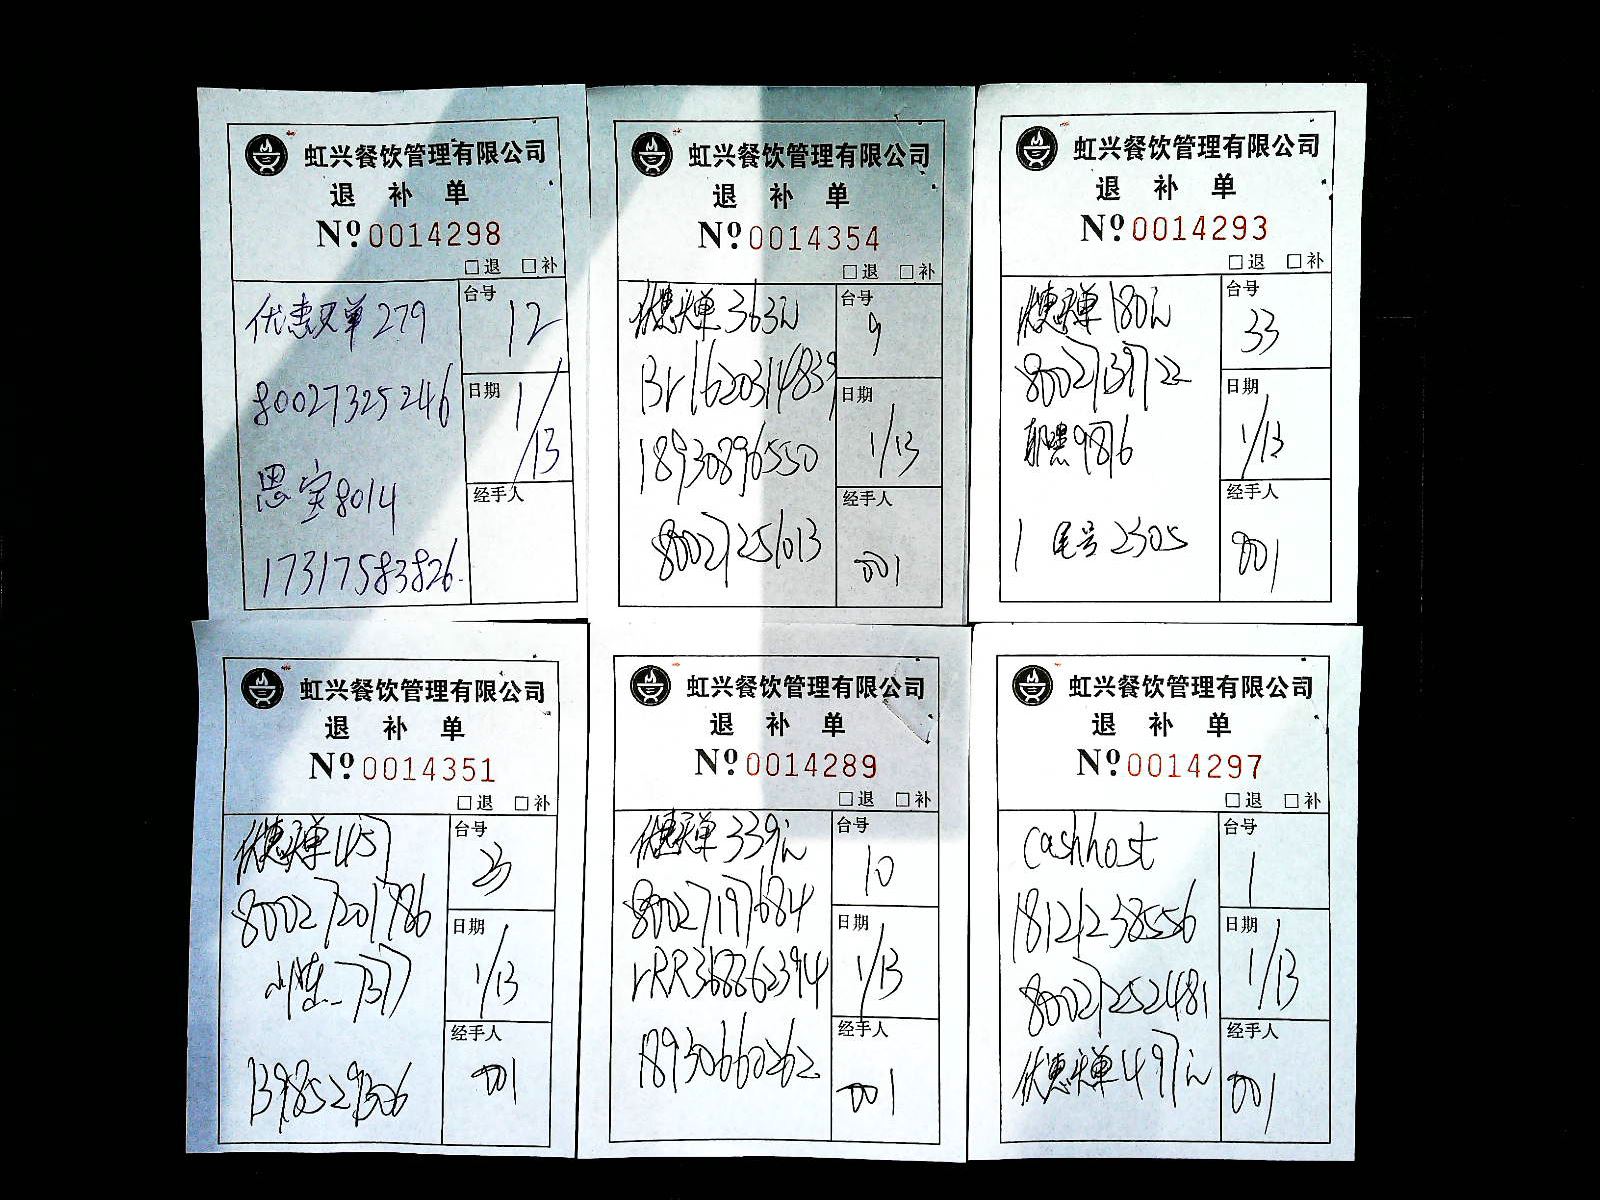 虹兴餐饮管理有限公司
退 补 单
Nº 0014298
□退 □补
优惠买单 279
80027325246
思宝8014
17317583826.
台号
12
日期
1/13
经手人
虹兴餐饮管理有限公司
退 补 单
Nº 0014354
□退 □补
优惠买单 363元
18930896550
80027251013
台号
9
日期
1/13
经手人
001
虹兴餐饮管理有限公司
退 补 单
Nº 0014293
□退 □补
优惠买单 180元
80027139722
9876
1 尾号2305
台号
33
日期
1/13
经手人
001
虹兴餐饮管理有限公司
退 补 单
Nº 0014351
□退 □补
优惠买单 1457
80027201786
7377
台号
23
日期
1/13
经手人
001
虹兴餐饮管理有限公司
退 补 单
Nº 0014289
□退 □补
优惠买单 339元
80027197684
rRR368862394
18930660262
台号
10
日期
1/13
经手人
001
虹兴餐饮管理有限公司
退 补 单
Nº 0014297
□退 □补
cashhost
18121238556
80027252481
优惠买单 497元
台号
1
日期
1/13
经手人
001